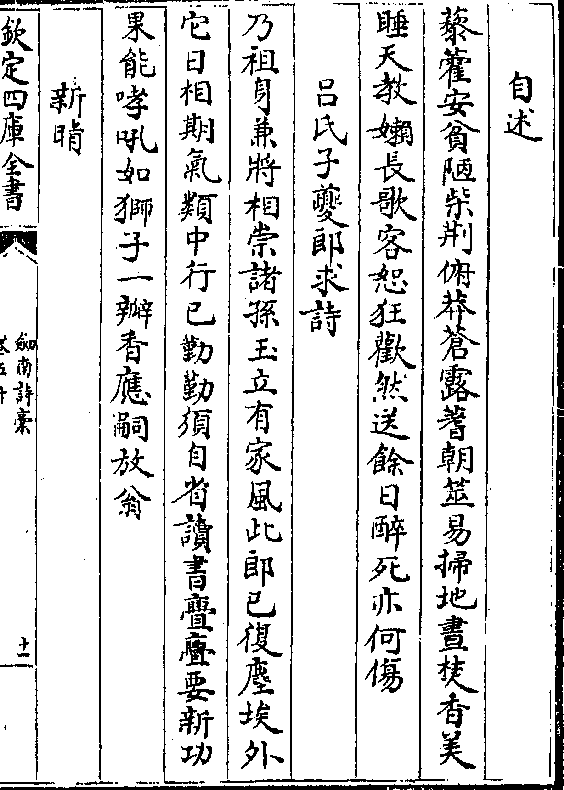 自述
藜藿安貧陋柴荆俯莽蒼露蓍朝筮易掃地晝焚香美
睡天教嬾長歌客恕狂歡然送餘日醉死亦何傷
呂氏子夔郎求詩
乃祖身兼將相崇諸孫玉立有家風此郎已復塵埃外
它日相期氣類中行已勤勤須自省讀書亹亹要新功
果能哮吼如獅子一瓣香應嗣放翁
新晴
欽定四庫全書
劍南詩藁
十一